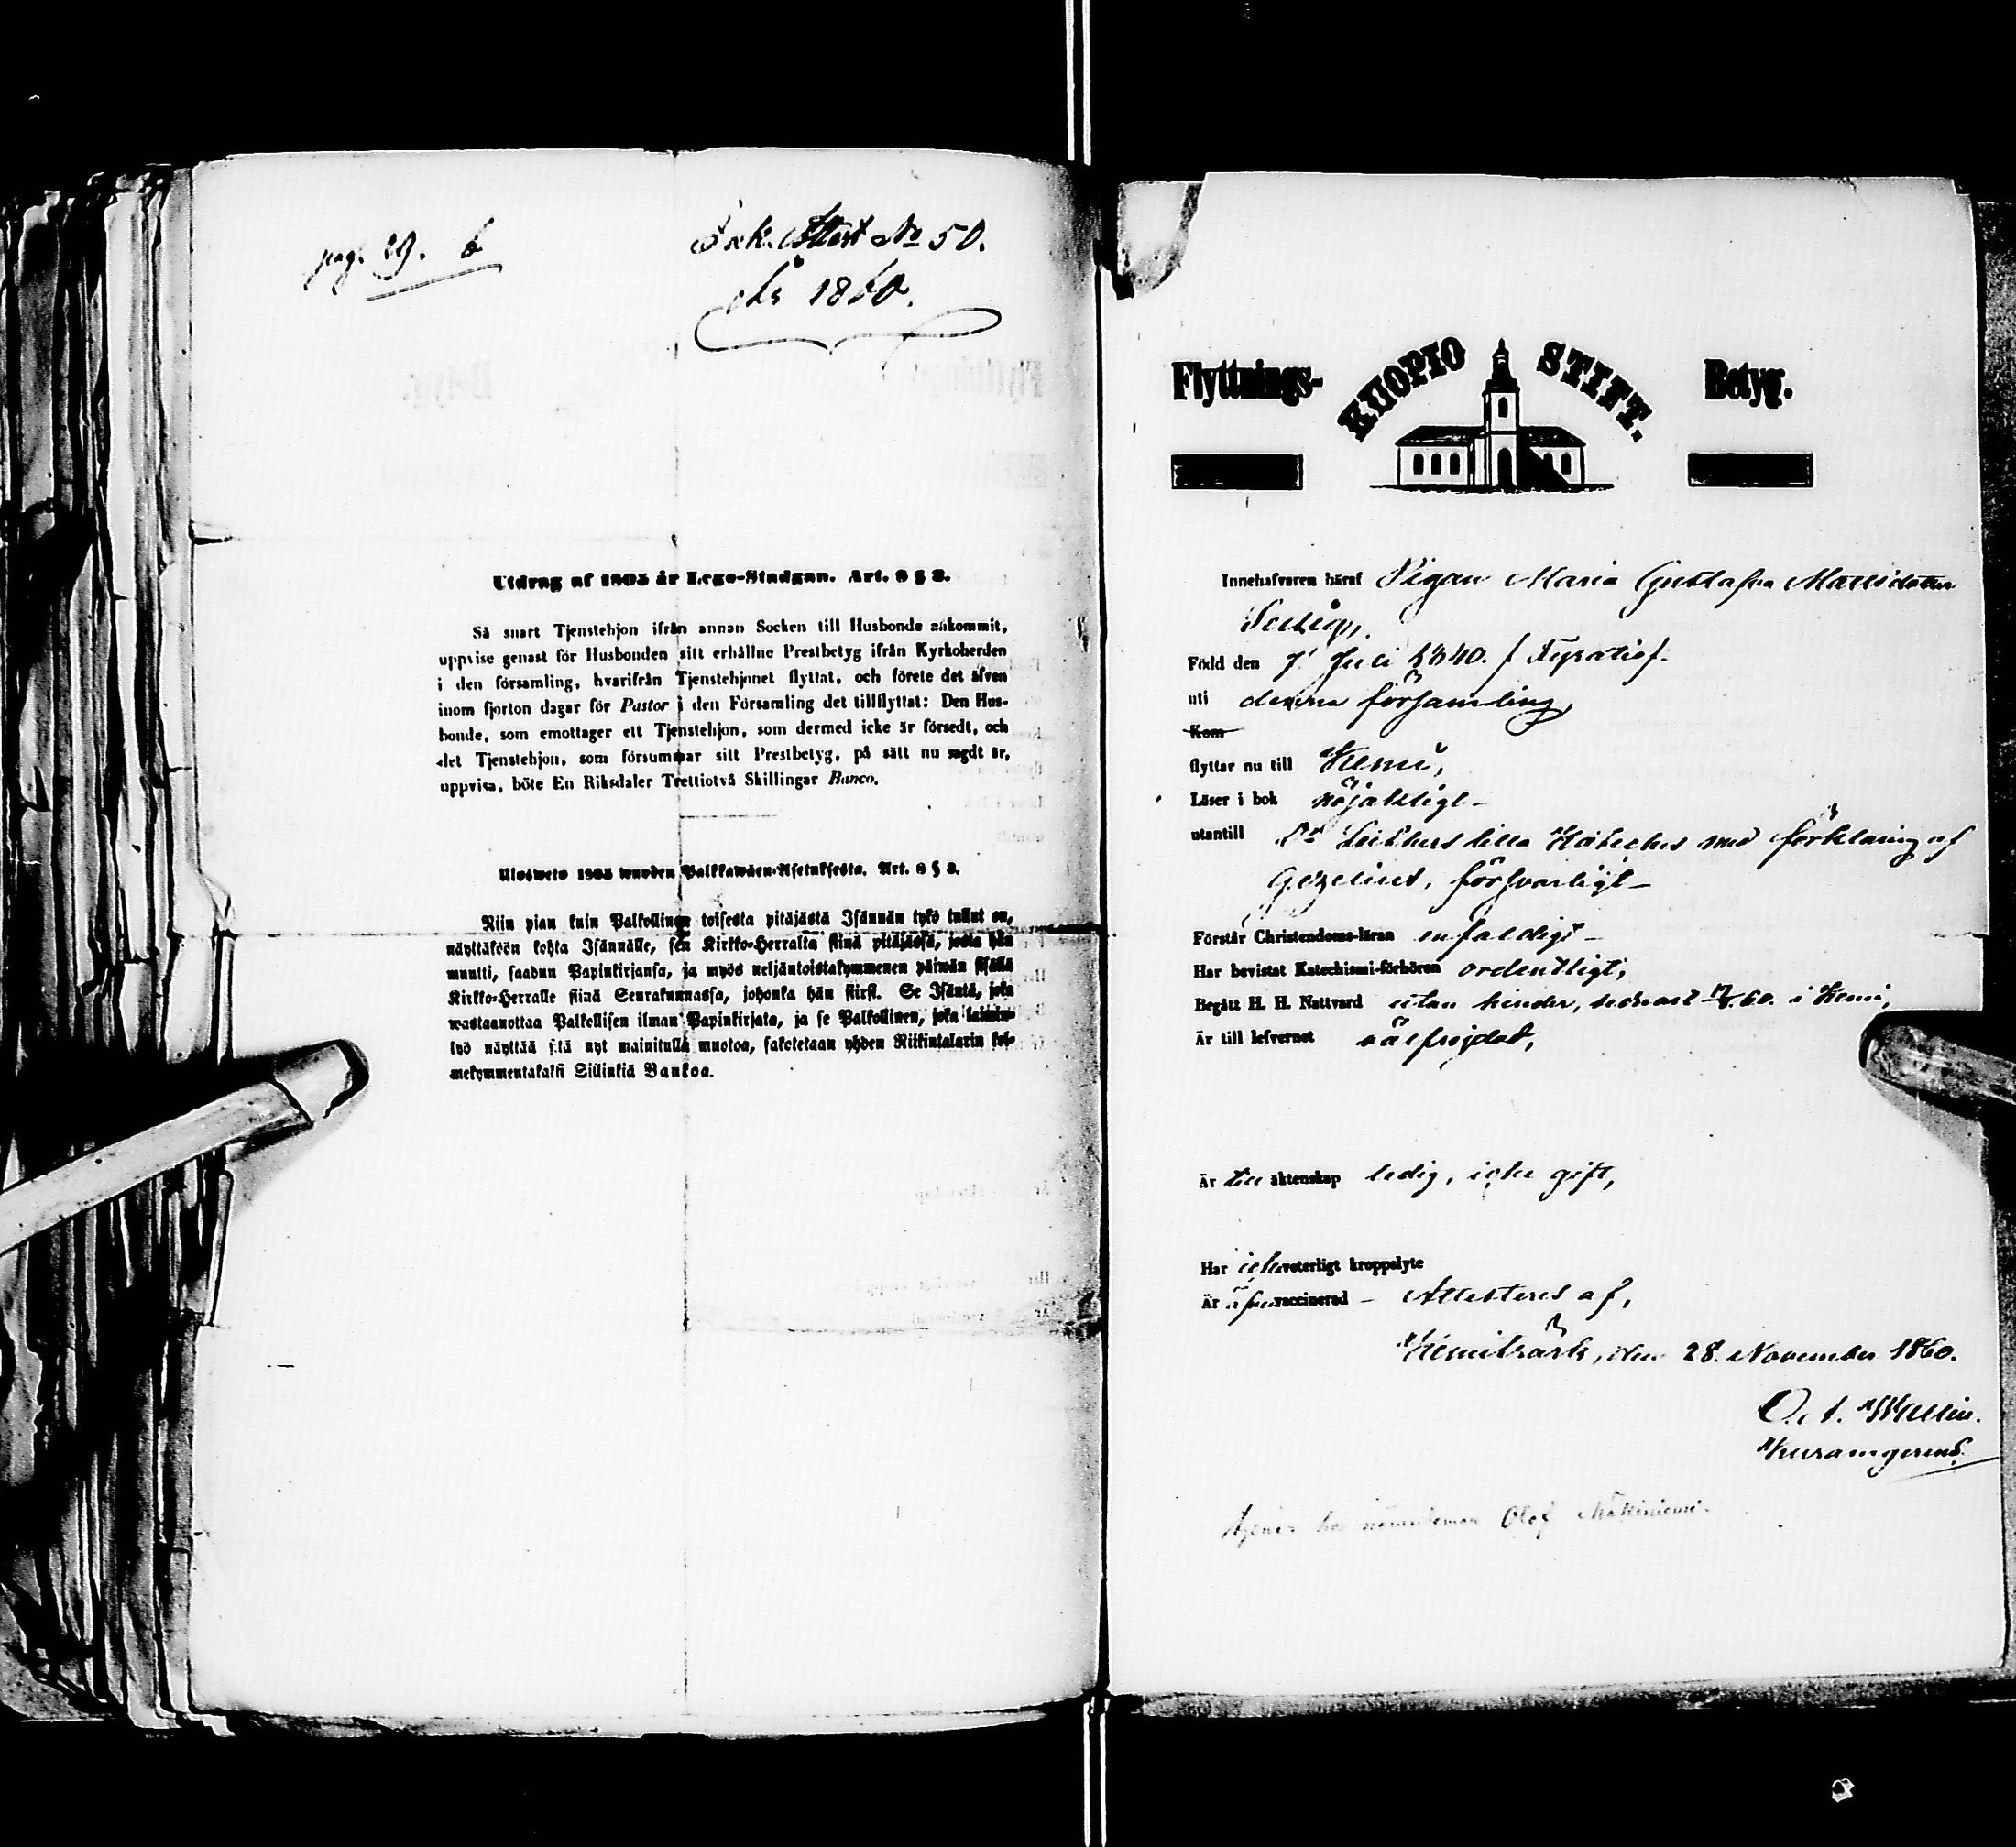 pag. 29. b
Ink. Attest No 50.
År 1860.
Utdrag af 1805 år Lego-Stadgan. Art. 8 § 2.
Så snart Tjenstehjon ifrån annan Socken till Husbonde ankommit,
uppvise genast för Husbonden sitt erhållne Prestbetyg ifrån Kyrkoherden
i den församling, hvarifrån Tjenstehjonet flyttat, och förete det äfven
inom fjorton dagar för Pastor i den Församling det tillflyttat: Den Hus-
bonde, som emottager ett Tjenstehjon, som dermed icke är försedt, och
det Tjenstehjon, som försummar sitt Prestbetyg, på sätt nu sagdt är,
uppvisa, böte En Riksdaler Trettiotvå Skillingar Banco.
Ulosweto 1805 wuoden Palkkawäen-Asetuksesta. Art. 8 § 2.
Niin pian kuin Palkollinen toisesta pitäjästä Isännän tykö tullut on,
näyttäköön kohta Isännälle, sen Kirkko-Herralta siinä pitäjässä, josta hän
muutti, saadun Papinkirjansa, ja myös neljäntoistakymmenen päiwän sisällä
Kirkko-Herralle siinä Seurakunnassa, johonka hän siirsi. Se Isäntä, joka
wastaanottaa Palkollisen ilman Papinkirjata, ja se Palkollinen, joka laimin-
lyö näyttää sitä nyt mainitulla muotoa, sakotetaan yhden Riikintalarin kol-
mekymmentäkaksi Siilinkiä Bankoa.
Flyttnings- KUOPIO STIFT. Betyg.
Innehafvaren häraf Pigan Maria Gustafva Mattsdotter
Född den 7 Juli 1840.
uti denna församling,
Kom
flyttar nu till Kemi,
Läser i bok nöjaktigt -
utantill Dr Luthers lilla Kateches med förklaring af
Gezelius, försvarligt -
Förstår Christendoms-läran enfaldigt -
Har bevistat Katechismi-förhören ordentligt,
Begått H. H. Nattvard utan hinder, sednast 60. i Kemi,
Är till lefvernet välfrejdad,
Är till äktenskap ledig, icke gift,
Har icke veterligt kroppslyte
Är äfven vaccinerad - Attesteras af,
Kemiträsk, den 28. November 1860.
O. A. Wallin.
Tjenar hos nämndeman Olof Mäkiniemi.